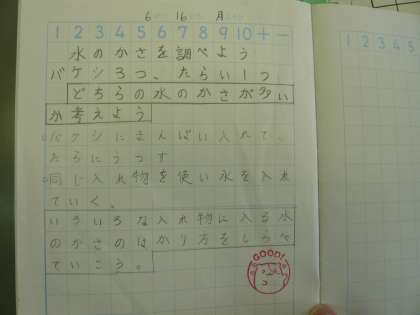 6 16 月
1 2 3 4 5 6 7 8 9 10 + −
水のかさを調べよう
バケツ3つ、たらい1つ
どちらの水のかさが多い
か考えよう
バケツにまんぱい入れて、
たらにうつす
同じ入れ物を使い水を入れ
ていく。
いろいろな入れ物に入る水
のかさのはかり方をしらべ
ていこう。
GOOD!
1 2 3 4 5